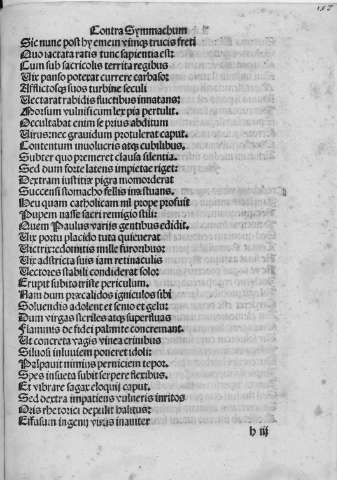 Contra Symmachum
Sic nunc post hyemem vimq; trucis freti
Quo iactata ratis tunc sapientia est:
Cum sub sacricolis territa regibus
Uix panso poterat currere carbaso:
Afflictosq; suos turbine seculi
Uectarat rabidis fluctibus innatans:
Morsum vulnificum lex pia pertulit.
Occultabat enim se prius abditum
Uirus: nec grauidum protulerat caput.
Contentum inuolucris atq; cubilibus.
Subter quo premeret clausa silentia.
Sed dum forte latens impietas riget:
Dextram iustitiæ pigra momorderat
Succensi stomacho fellis inæstuans.
Heu quam catholicam nil prope profuit
Puppem nasse sacri remigio stili:
Quem Paulus varijs gentibus edidit.
Uix portu placido tuta quieuerat
Uictrix edomitis mille furoribus:
Uix adstricta suis iam retinaculis
Uectores stabili condiderat solo:
Erupit subito triste periculum.
Nam dum præcalidos igniculos sibi
Soluendis adolent et senio et gelu:
Dum virgas steriles atq; superfluas
Flammis de fidei palmite concremant.
Ut concreta vagis vinea crinibus
Siluosi inluuiem poneret idoli:
Palpauit nimius perniciem tepor.
Spes insueta subit serpere flexibus.
Et vibrare sagax eloquij caput.
Sed dextra impatiens vulneris inritos
Oris rhetorici depulit halitus:
Effusum ingenij virus inaniter
h iij